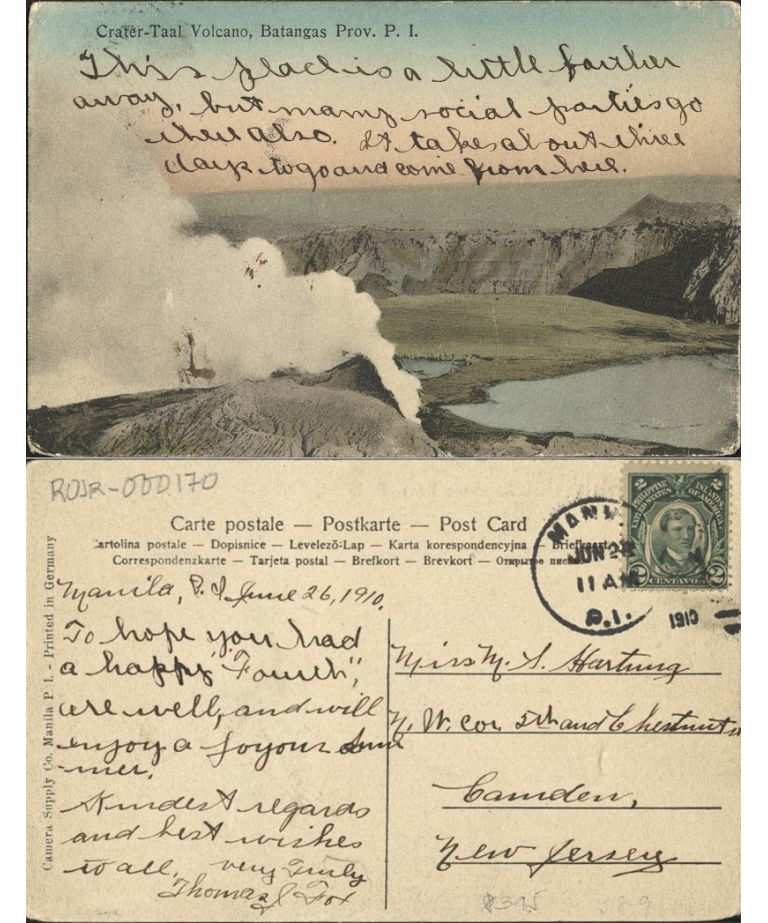 Crater-Taal Volcano, Batangas Prov. P. I.
This place is a little farther
away, but many social parties go
there also. It takes about three
days to go and come from here.
ROJR-000170
Carte postale — Postkarte — Post Card
Cartolina postale — Dopisnice — Levelező-Lap — Karta korespondencyjna — Briefkaart
Correspondenzkarte — Tarjeta postal — Brefkort — Brevkort — Открытое
Camera Supply Co. Manila P. I. - Printed in Germany
PHILIPPINE ISLANDS
UNITED STATES OF AMERICA
2 CENTAVOS 2
MANI
JUN 28
11 AM
P.I.
1910
Manila, P. I. June 26, 1910.
To hope you had
a happy "Fourth",
are well, and will
enjoy a joyous sum
-mer.
Kindest regards
and best wishes
to all, very truly
Thomas J Fox
Miss M. S. Hartung
N. W. cor 5th and Chestnut
Camden,
New Jersey